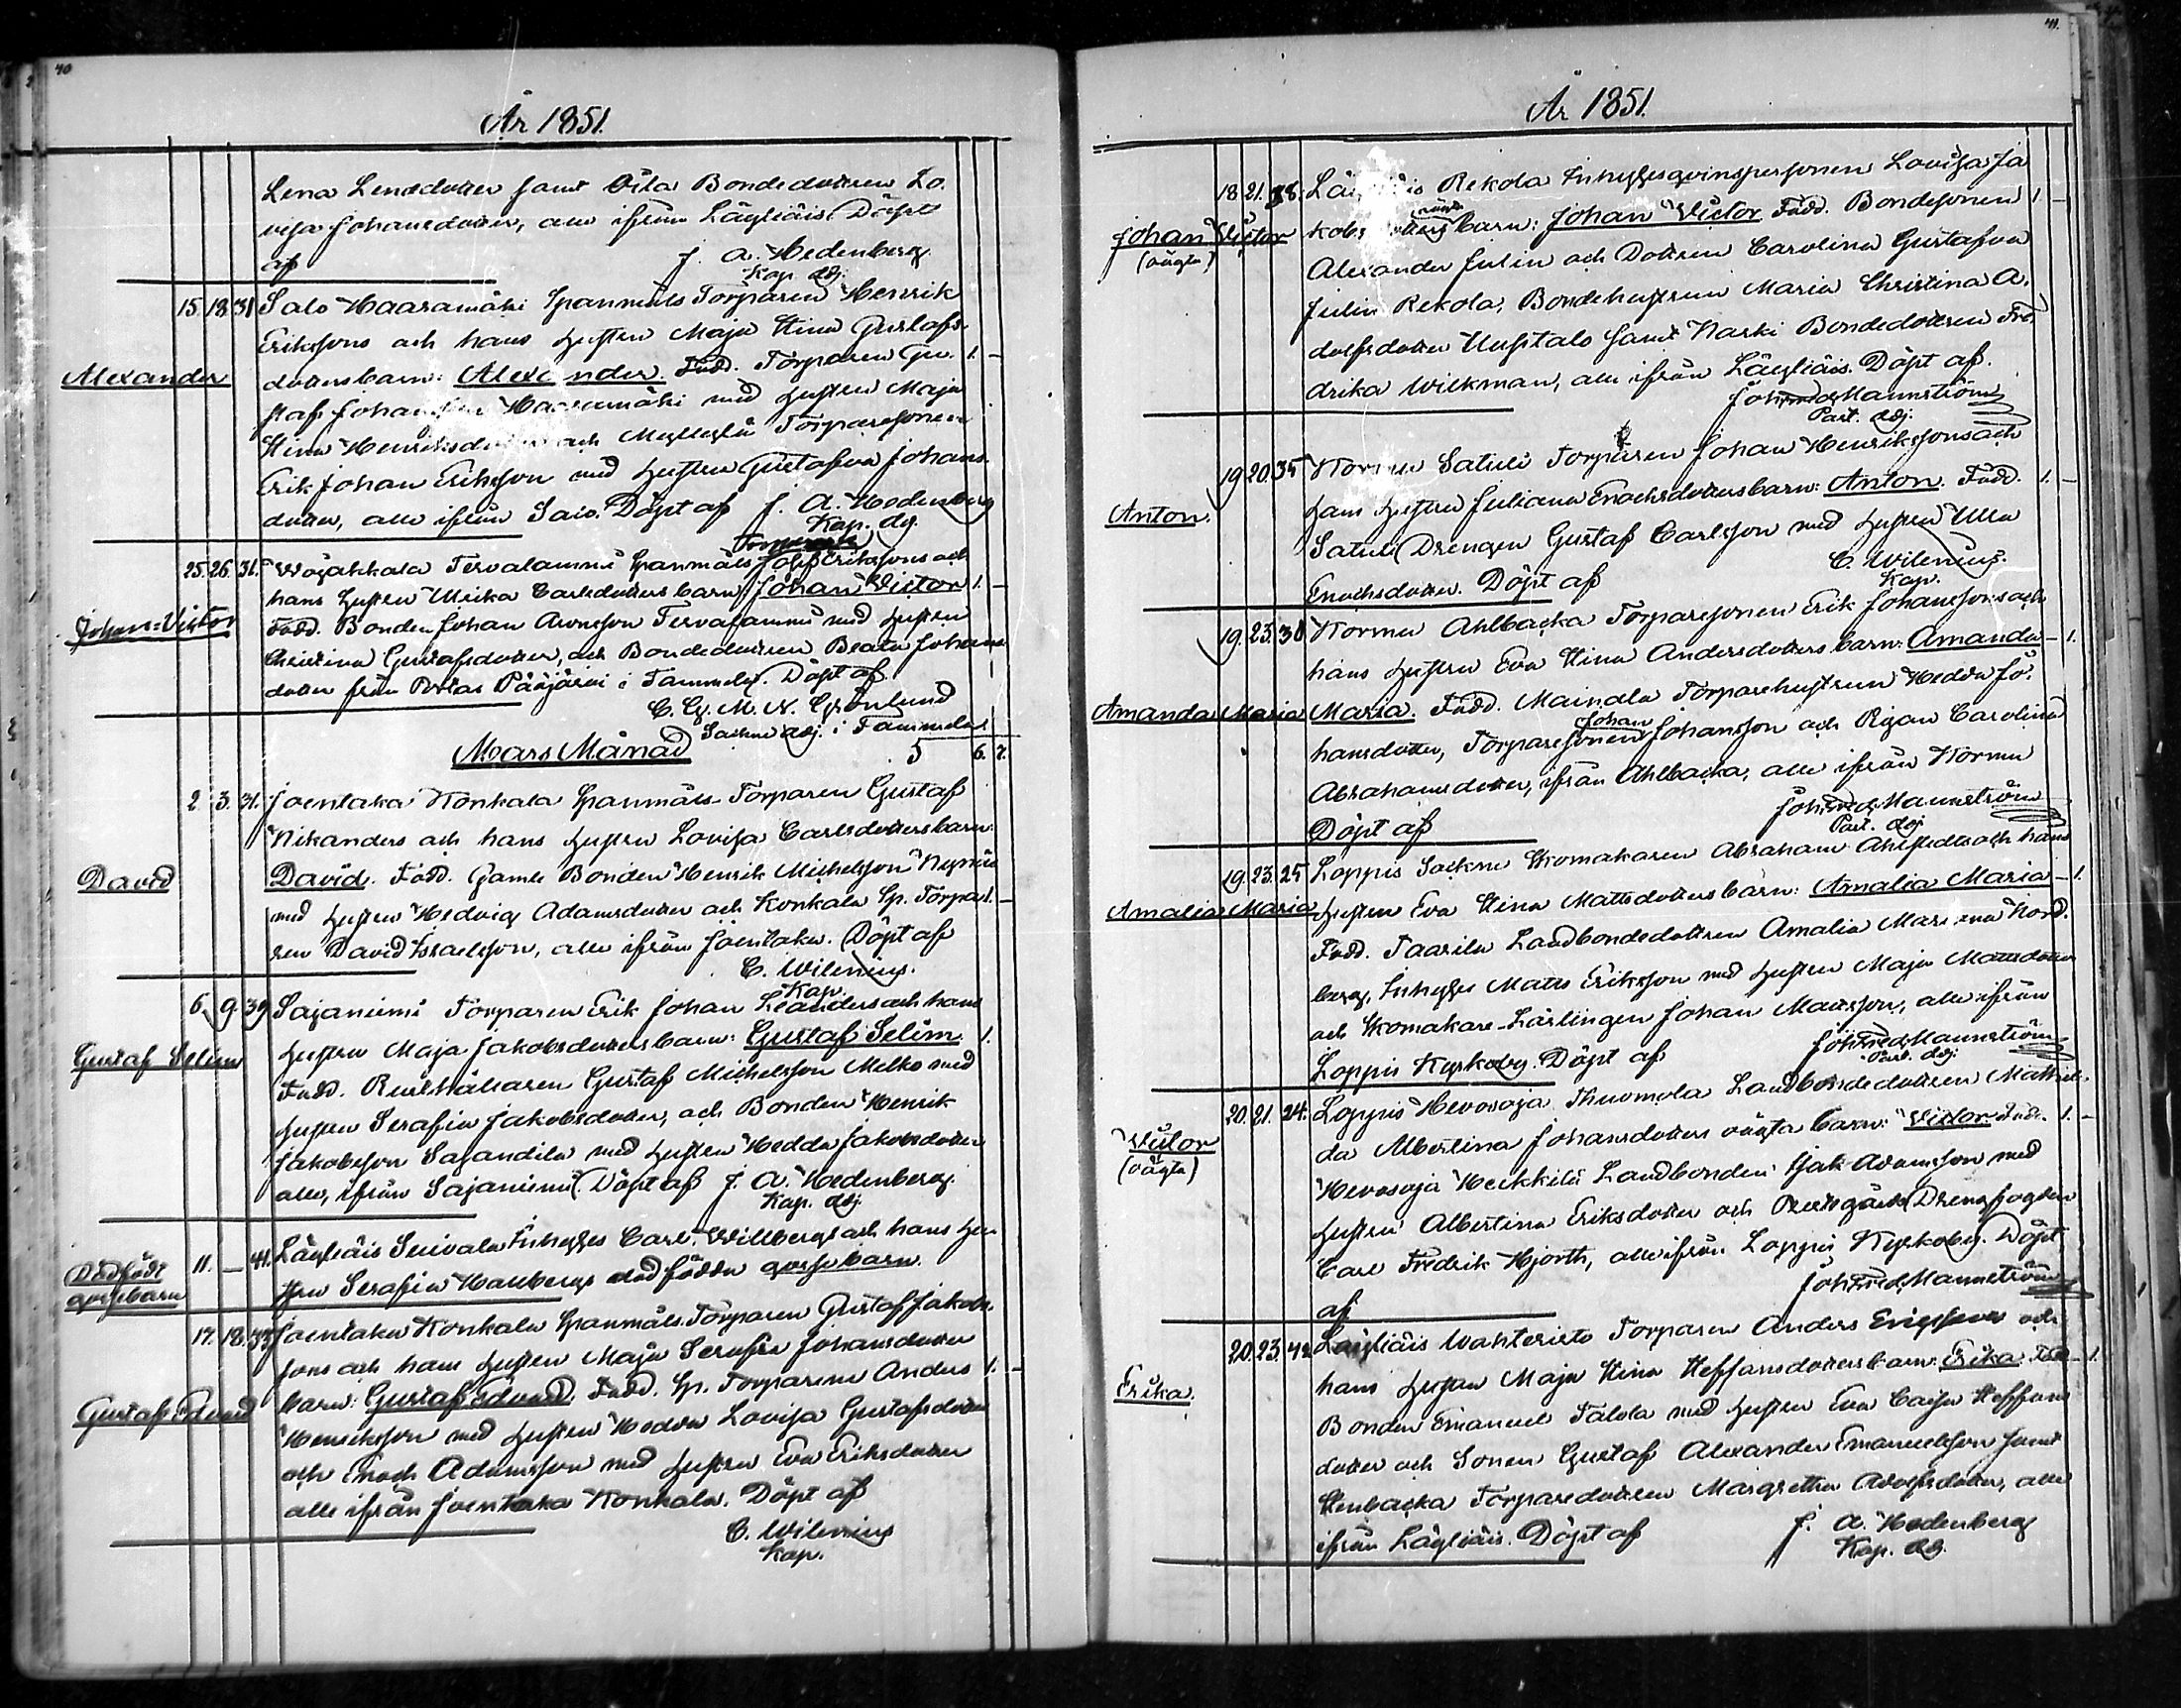 40
År 1851.
Lena Lenædotter samt Oila Bondedottren Lo-
visa Johansdotter, alle ifrån Läyliäis. Döpt
af J. A. Hedenberg
Kap. adj.
15. 18. 31 Salo Haaramäki Spanmåls Torparen Henrik
Erikssons och hans hustru Maja Stina Gustafs-
Alexander dotters barn: Alexander. Fadd. Torparen Gu- 1. –
staf Johansson Haaramäki med hustru Maja
Stina Henriksdotter och Torparesonen
Erik Johan Eriksson med hustru Gustafva Johans-
dotter, alle ifrån Salo. Döpt af J. A. Hedenberg
Kap. adj.
Torparen
25. 26. 31. Wojakkala Tervalammi Spanmåls Erikssons och
hans hustru Ulrika Carlsdotters barn Johan Victor 1. –
Johan Victor Fadd. Bonden Johan Tervalammi med hustru
Christina Gustafsdotter, och Bondedottren Beata Johans-
dotter från Portas Pääjärvi i Tammela. Döpt af
C. G. M. N. Grönlund
Sockne adj. i Tammela
Mars Månad 5 6. 7.
2. 3. 31. Joentaka Konkala Spanmåls-Torparen Gustaf
Nikanders och hans hustru Lovisa Carlsdotters barn:
David David. Fadd. Gamle Bonden Henrik Michelsson
med hustru Hedvig Adamsdotter och Konkala Sp. Torpa- 1. –
ren David Israelsson, alle ifrån Joentaka. Döpt af
C. Wilenius.
Kap.
6. 9. 39 Sajaniemi Torparen Erik Johan Leanders och hans
hustru Maja Jakobsdotters barn: Gustaf Selim. 1.
Gustaf Selim Fadd. Rusthållaren Gustaf Michelsson Melko med
hustru Serafia Jakobsdotter, och Bonden Henrik
Jakobsson Sajandila med hustru Hedda Jakobsdotter
alle, ifrån Sajaniemi. Döpt af J. A. Hedenberg.
Kap. adj.
Dödfödt gossebarn 11. – 41. Läyliäis Inhyses Carl Willbergs och hans hu-
stru Serafia Hallbergs dödfödda gossebarn.
17. 18. 33 Joentaka Konkala Spanmåls Torparen Gustaf Jakobs-
sons och hans hustru Maja Serafia Johansdotter
barn: Gustaf Edvard. Fadd. Sp. Torparene Anders 1. –
Gustaf Edvard Henriksson med hustru Hedda Lovisa Gustafsdotter
och Enoch Adamsson med hustru Eva Eriksdotter
alle ifrån Joentaka Konkala. Döpt af
C. Wilenius
Kap.
41.
År 1851.
18. 21. 28. Rekola Inhysesqvinspersonen Lovisa Ja-
Johan Victor (oägta) oägta barn: Johan Victor Fadd. Bondesonen 1 –
Alexander Julin och Dottren Carolina Gustafva
Julin Rekola, Bondehustrun Maria Christina A-
dolfsdotter Uusitalo samt Narki Bondedottren Fre-
drika Wilkman, alle ifrån Läyliäis. Döpt af.
Joh: Fred. Mannström
Past. adj.
19 20. 35 Kormu Satuli Torparen Johan Henrikssons och
Anton. hans hustru Juliana Enochsdotters barn: Anton. Fadd. 1. –
Satuli Drengen Gustaf Carlsson med hustru Ulla
Enochsdotter. Döpt af C. Wilenius.
Kap.
19. 23. 38 Kormu Ahlbacka Torparesonen Erik Johanssons och
hans hustru Eva Stina Andersdotters barn: Amanda – 1.
Amanda Maria Maria. Fadd. Maindla Torparehustrun Hedda Jo-
hansdotter, Torparesonen Johan Johansson och Pigan Carolina
Abrahamsdotter, ifrån Ahlbacka, alle ifrån Kormu
Döpt af Joh: Fred. Mannström
Past. adj.
19. 23. 25 Loppis Sockne Skomakaren Abraham Ahlstedts och hans
Amalia Maria hustru Eva Stina Mattsdotters barn: Amalia Maria – 1.
Fadd. Taarila Landbondedottren Amalia Nord-
berg, Inhyses Matts Eriksson med hustru Maja Mattsdotter
och Skomakare-Lärlingen Johan Mattsson, alle ifrån
Loppis Kyrkoby. Döpt af Joh: Fred. Mannström
Past. adj.
20. 21. 24. Loppis Hevosoja Landbondedottren Mathil-
Victor (oägta) da Albertina Johansdotters oägta barn: Victor. Fadd. 1. –
Hevosoja Heikkilä Landbonden Isak Adamsson med
hustru Albertina Eriksdotter och Prestgårds Drengfogden
Carl Fredrik Hjorth, alle ifrån Loppis Kyrkoby. Döpt
af Joh: Fred. Mannström
20. 23. 42 Läyliäis Wahteristo Torparen Anders och
Erika. hans hustru Maja Stina Steffansdotters barn: Erika Fadd – 1.
Bonden Emanuel Talola med hustru Eva Caisa Steffans-
dotter och Sonen Gustaf Alexander Emanuelsson samt
Stenbacka Torparedottren Margretha Adolfsdotter, alle
ifrån Läyliäis. Döpt af J. A. Hedenberg
Kap. adj.